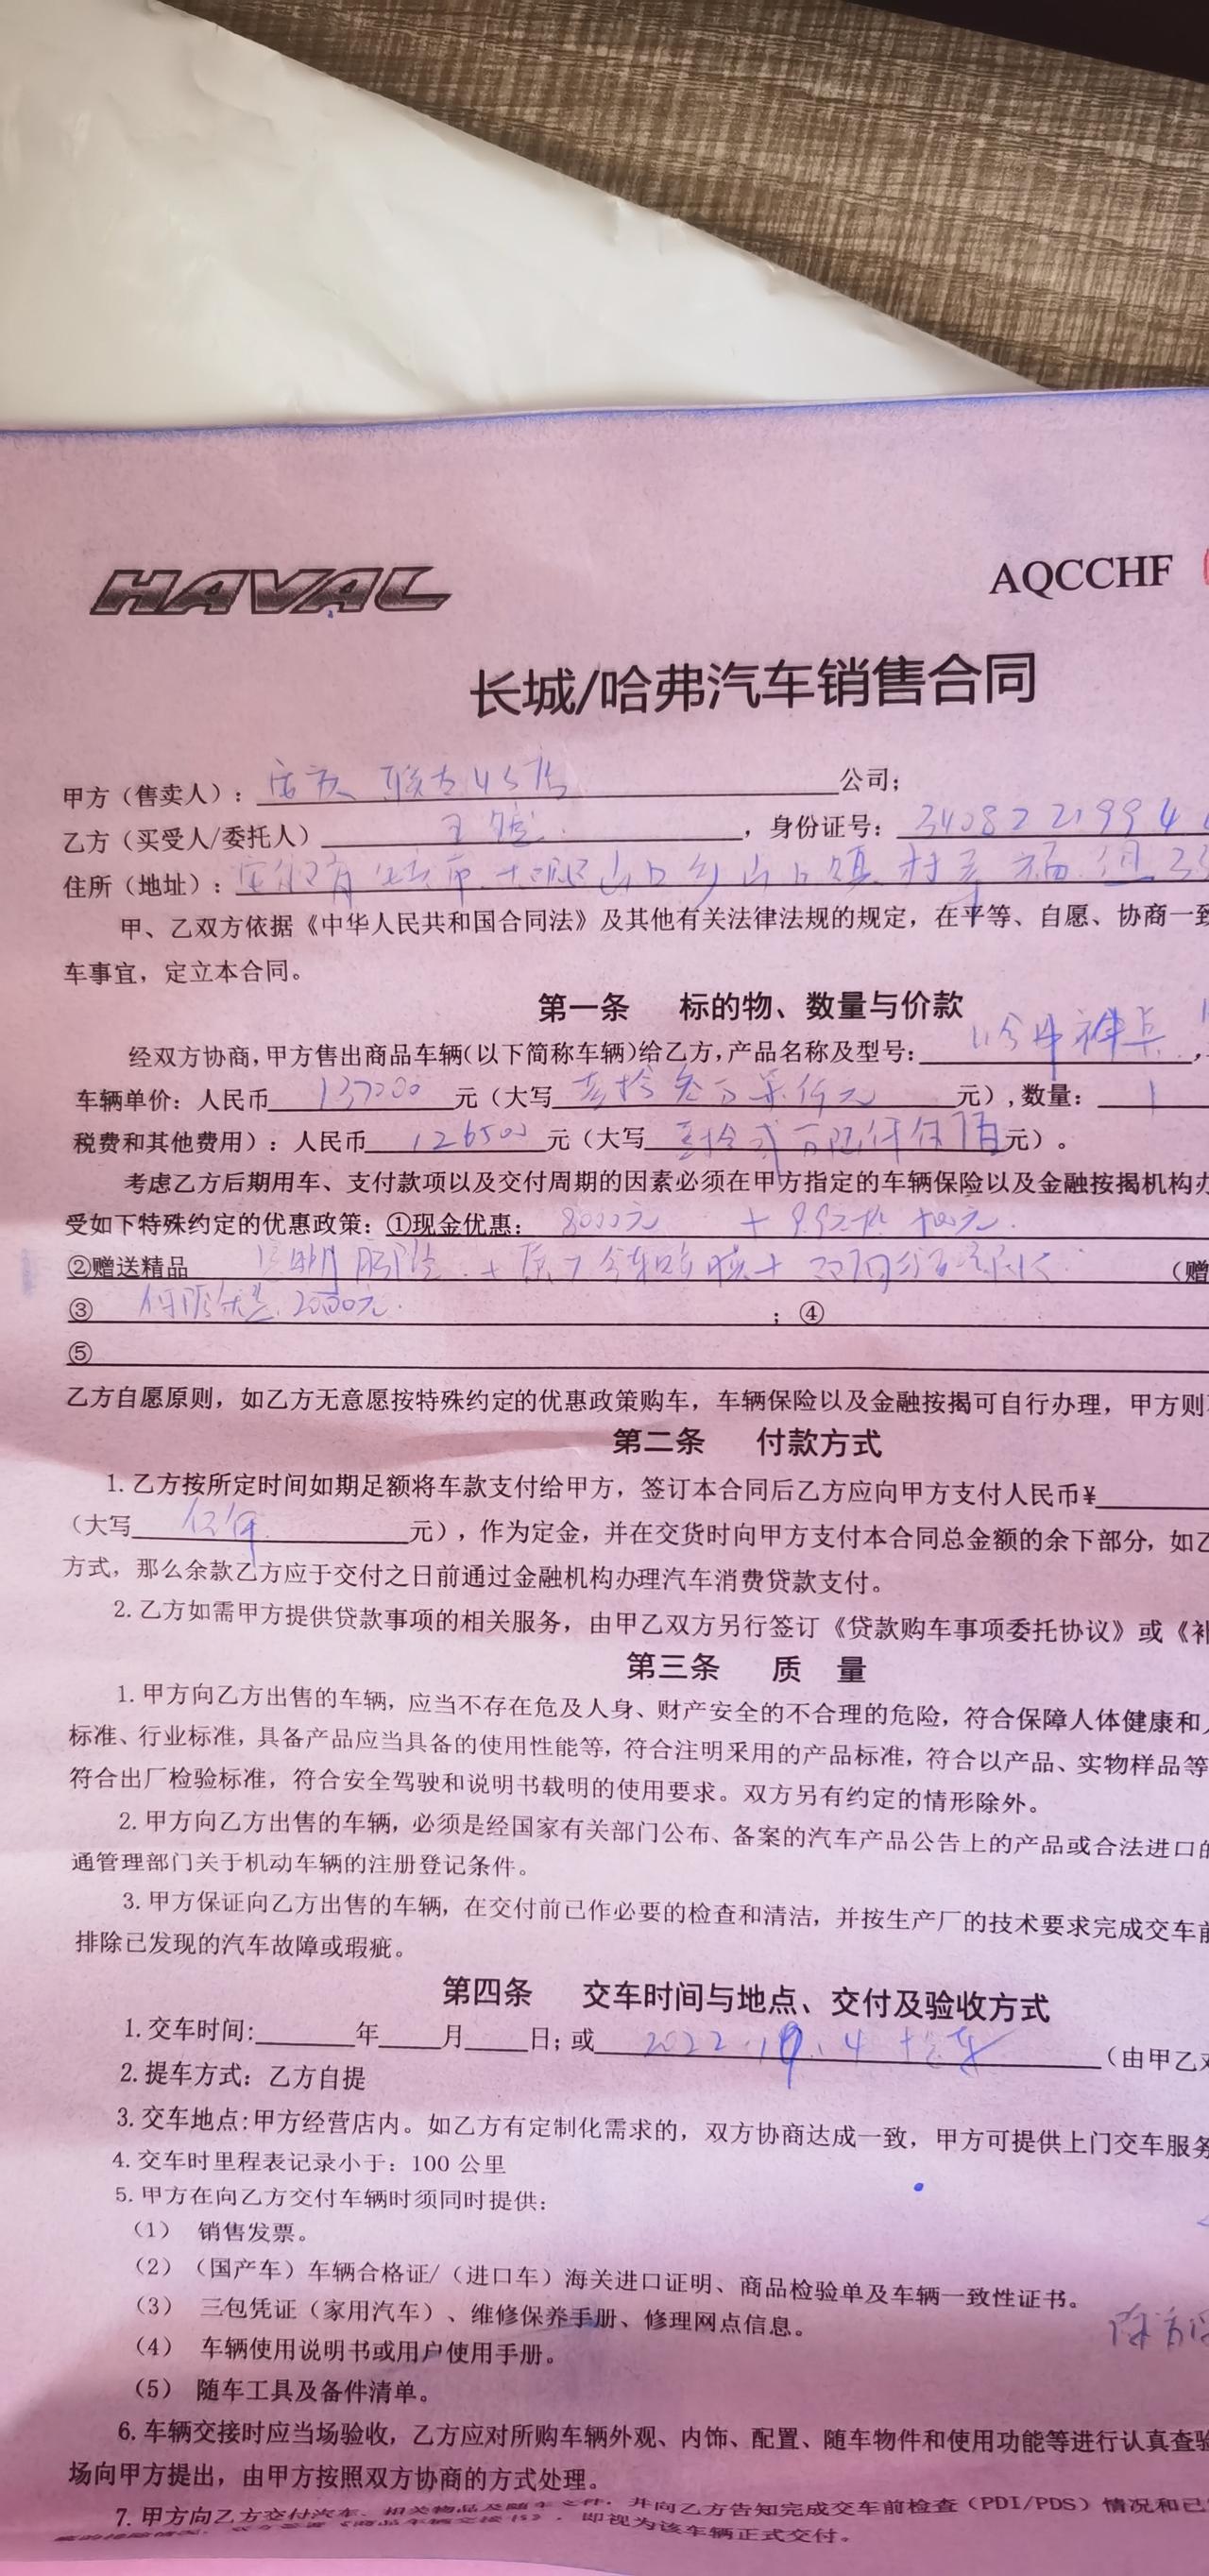 HAVAL
AQCCHF
长城/哈弗汽车销售合同
甲方（售卖人）：安庆 联吉4S店 公司；
乙方（买受人/委托人），身份证号：3408221994
住所（地址）：安徽省安庆市 大观区山口乡山口镇村幸福组33
甲、乙双方依据《中华人民共和国合同法》及其他有关法律法规的规定，在平等、自愿、协商一致
车事宜，定立本合同。
第一条 标的物、数量与价款
经双方协商，甲方售出商品车辆（以下简称车辆）给乙方，产品名称及型号：哈弗神兽，
车辆单价：人民币137000元（大写壹拾叁万柒仟元元），数量：1
税费和其他费用）：人民币126500元（大写壹拾贰万陆仟伍佰元）。
考虑乙方后期用车、支付款项以及交付周期的因素必须在甲方指定的车辆保险以及金融按揭机构办
受如下特殊约定的优惠政策：①现金优惠：8000元 +
②赠送精品 +全车贴膜+（赠
③保险优惠 2000元.；④
⑤
乙方自愿原则，如乙方无意愿按特殊约定的优惠政策购车，车辆保险以及金融按揭可自行办理，甲方则
第二条 付款方式
1.乙方按所定时间如期足额将车款支付给甲方，签订本合同后乙方应向甲方支付人民币¥
（大写伍仟元），作为定金，并在交货时向甲方支付本合同总金额的余下部分，如乙
方式，那么余款乙方应于交付之日前通过金融机构办理汽车消费贷款支付。
2.乙方如需甲方提供贷款事项的相关服务，由甲乙双方另行签订《贷款购车事项委托协议》或《补
第三条 质 量
1.甲方向乙方出售的车辆，应当不存在危及人身、财产安全的不合理的危险，符合保障人体健康和
标准、行业标准，具备产品应当具备的使用性能等，符合注明采用的产品标准，符合以产品、实物样品等
符合出厂检验标准，符合安全驾驶和说明书载明的使用要求。双方另有约定的情形除外。
2.甲方向乙方出售的车辆，必须是经国家有关部门公布、备案的汽车产品公告上的产品或合法进口的
通管理部门关于机动车辆的注册登记条件。
3.甲方保证向乙方出售的车辆，在交付前已作必要的检查和清洁，并按生产厂的技术要求完成交车前
排除已发现的汽车故障或瑕疵。
第四条 交车时间与地点、交付及验收方式
1.交车时间:年月日；或2022.10.4 提车（由甲乙双
2.提车方式：乙方自提
3.交车地点:甲方经营店内。如乙方有定制化需求的，双方协商达成一致，甲方可提供上门交车服务
4.交车时里程表记录小于：100 公里
5.甲方在向乙方交付车辆时须同时提供：
（1） 销售发票。
（2）（国产车）车辆合格证/（进口车）海关进口证明、商品检验单及车辆一致性证书。
（3） 三包凭证（家用汽车）、维修保养手册、修理网点信息。
（4） 车辆使用说明书或用户使用手册。
（5） 随车工具及备件清单。
6.车辆交接时应当场验收，乙方应对所购车辆外观、内饰、配置、随车物件和使用功能等进行认真查验
场向甲方提出，由甲方按照双方协商的方式处理。
7.甲方向乙方交付汽车、相关物品及随车文件，并向乙方告知完成交车前检查（PDI/PDS）情况和已
双方签署《商品车辆交接书》，即视为该车辆正式交付。